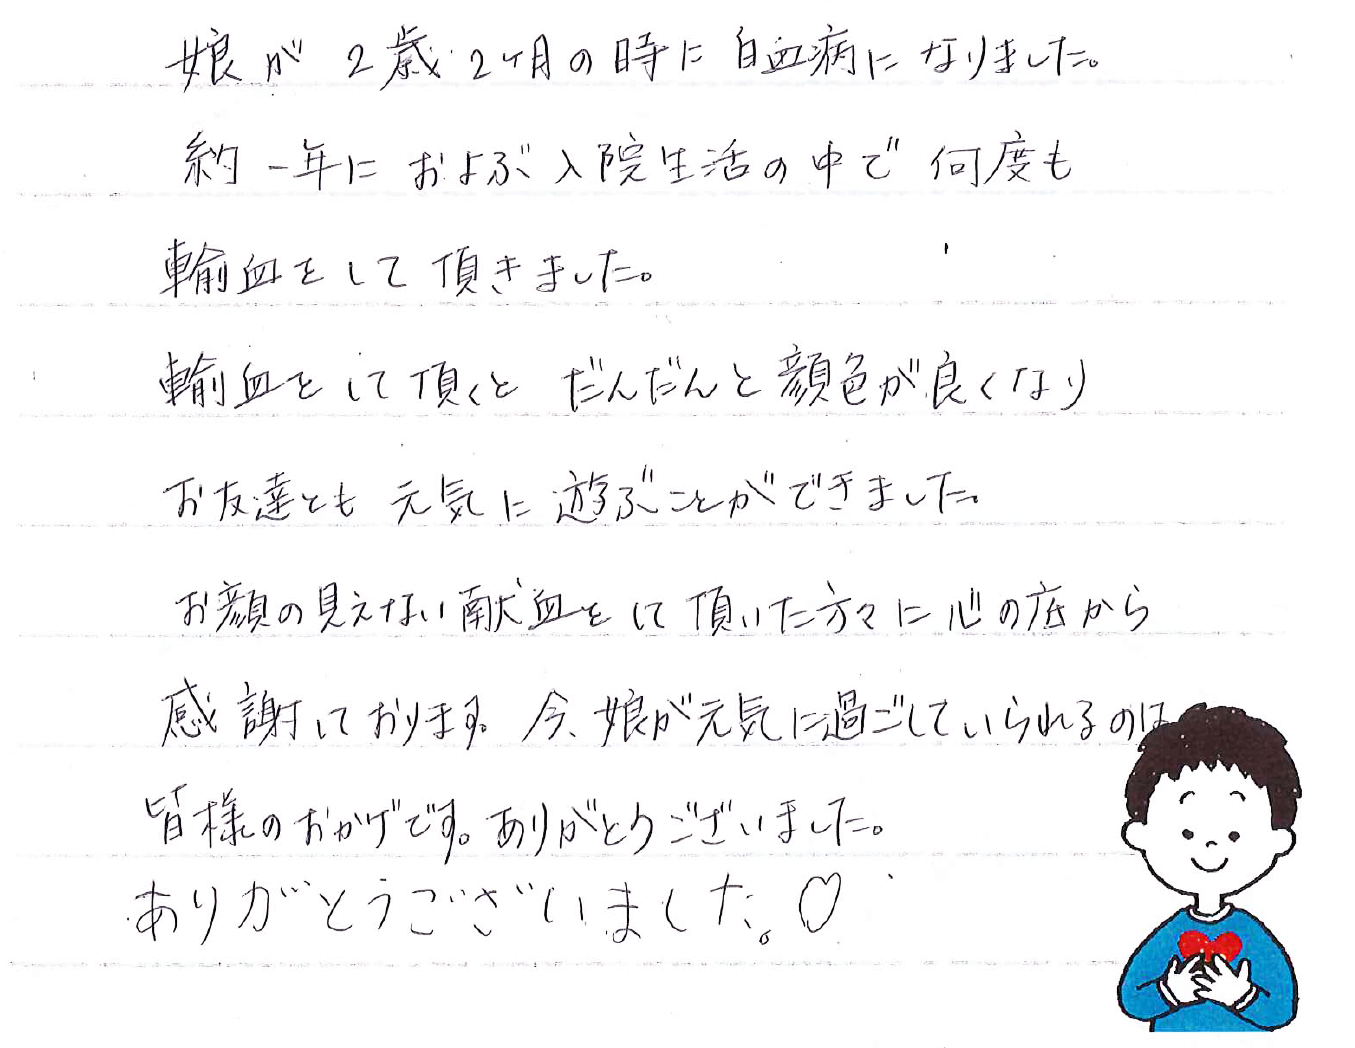 娘が 2歳2ヶ月の時に 白血病になりました。
約一年に およぶ 入院生活の中で 何度も
輸血をして 頂きました。
輸血をして頂くと だんだんと顔色が良くなり
お友達とも 元気に 遊ぶことができました。
お顔の見えない献血をして頂いた方々に 心の底から
感謝しております。今、娘が元気に過ごしていられるのは
皆様のおかげです。ありがとうございました。
ありがとうございました。♡